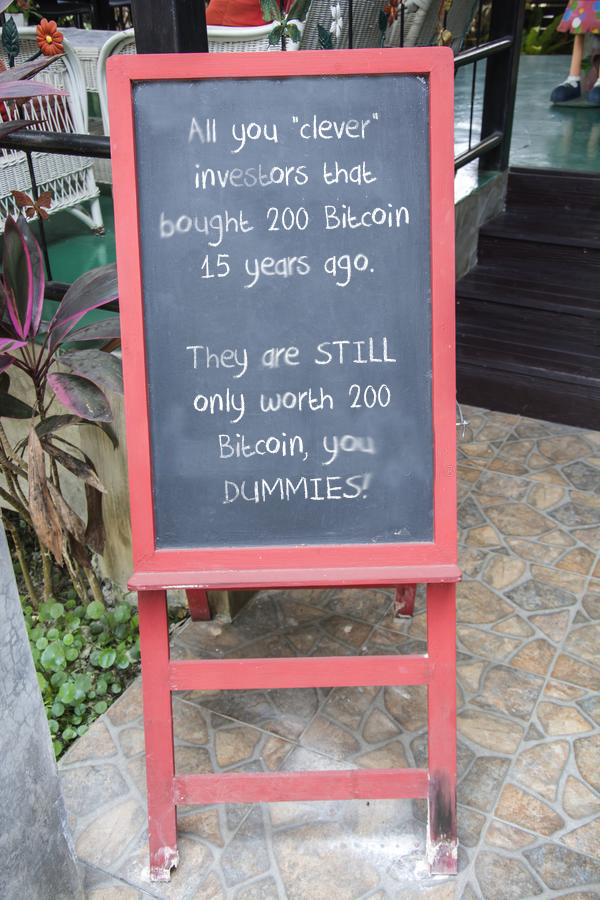 All you "clever"
investors that
bought 200 Bitcoin
15 years ago.
They are STILL
only worth 200
Bitcoin, you
DUMMIES!